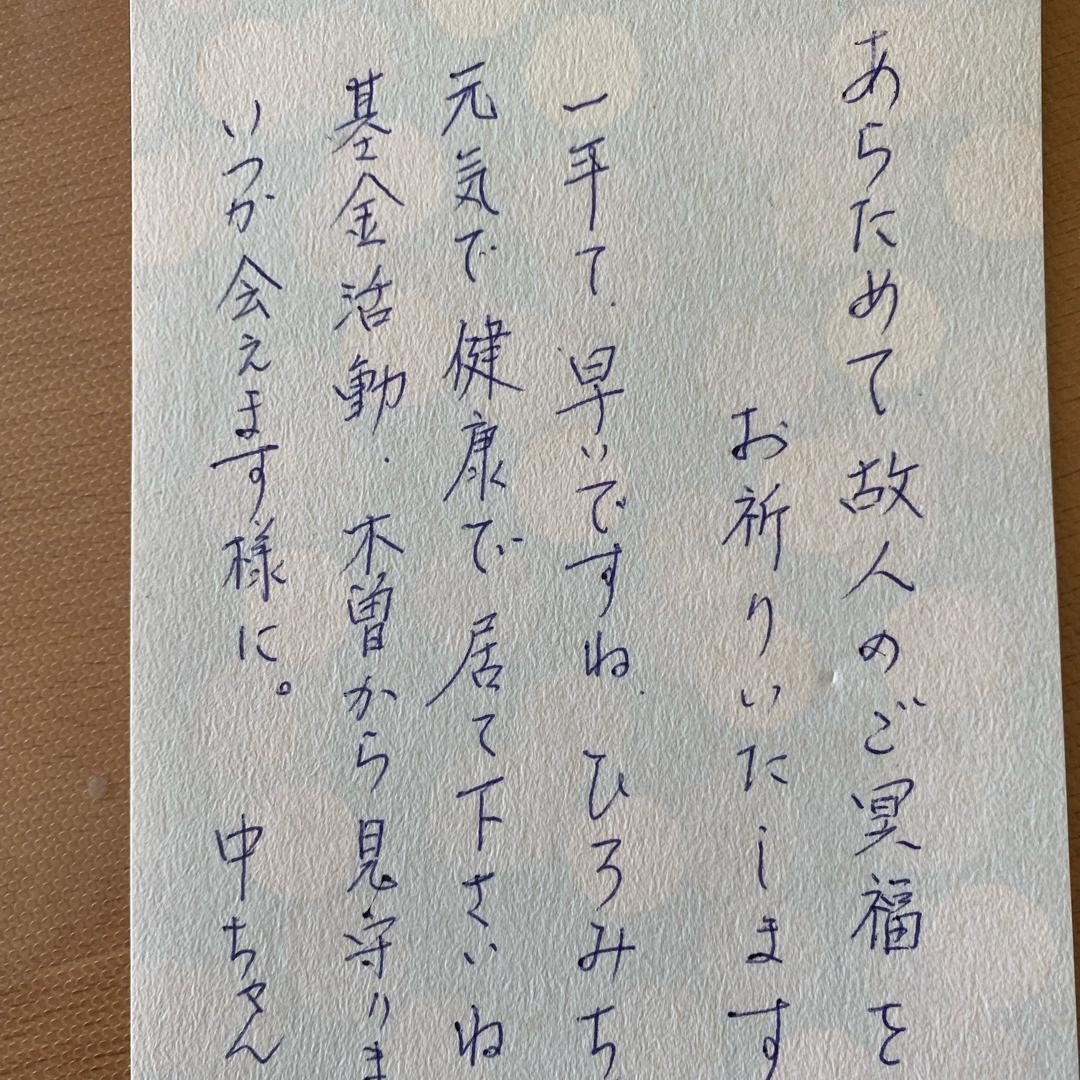 あらためて故人のご冥福を
お祈りいたします
一年て、早いですね、ひろみち
元気で健康で居て下さいね
基金活動、木曽から見守りま
いつか会えます様に。 中ちゃん